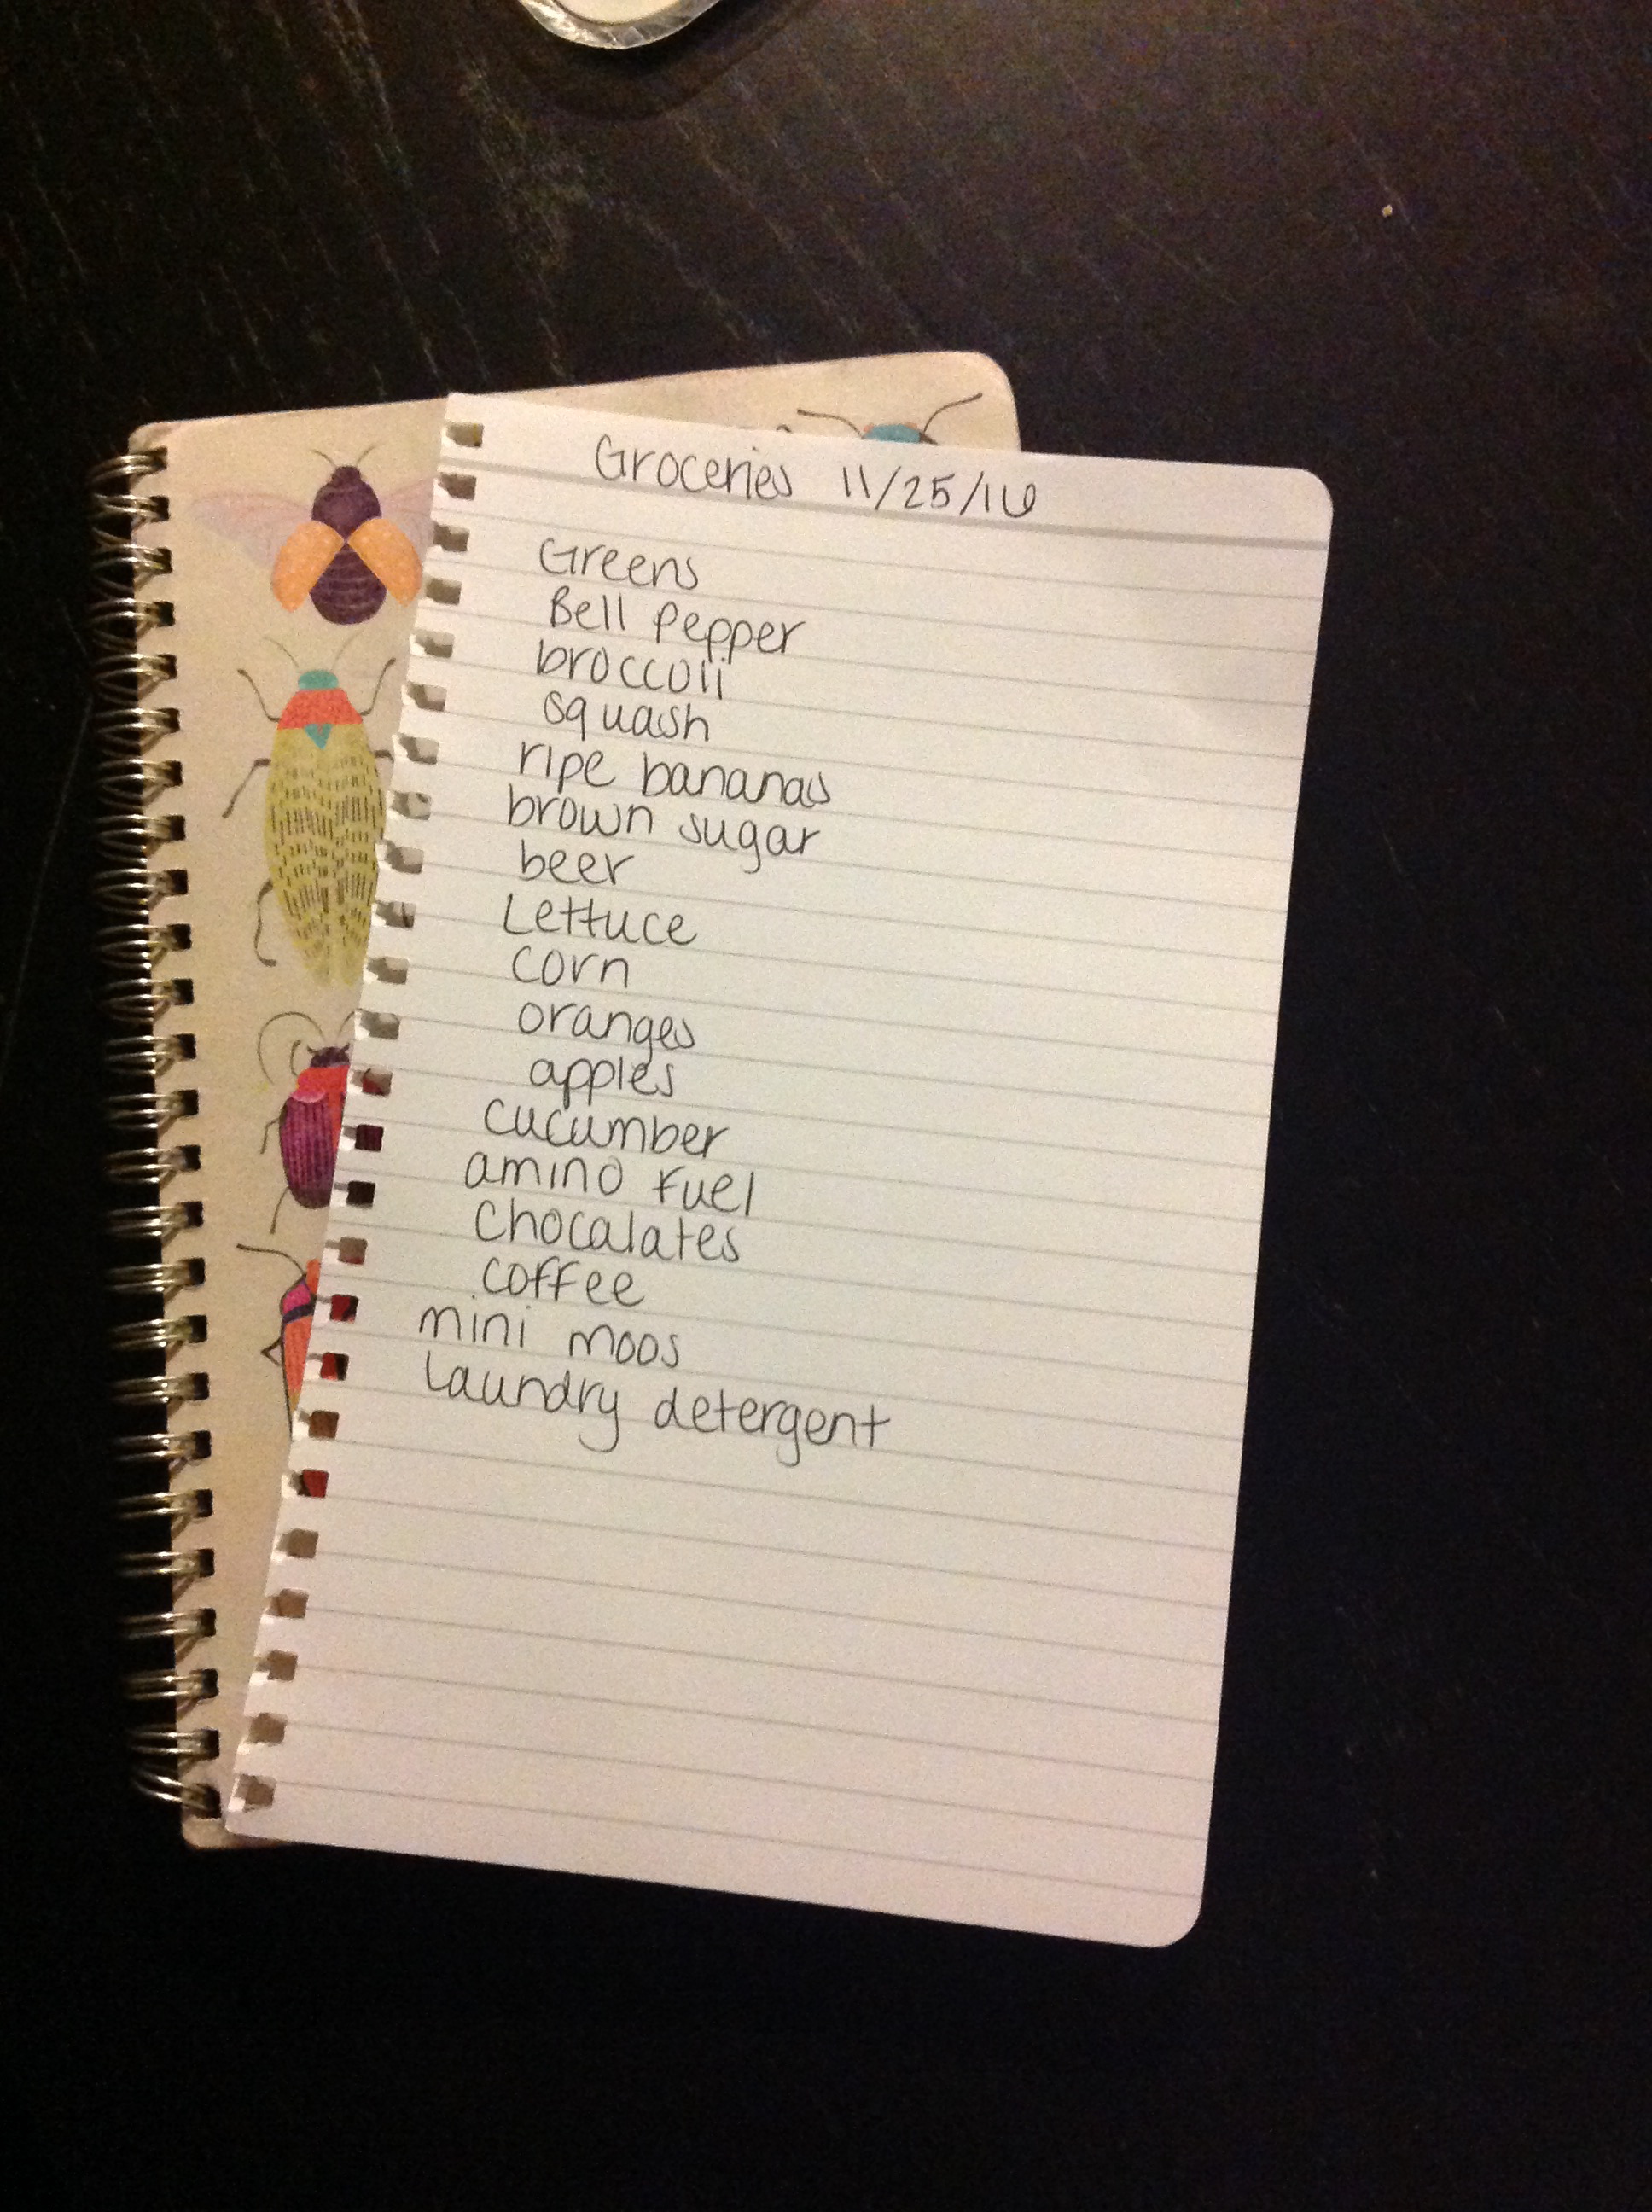 Groceries 11/25/16
Greens
Bell Pepper
broccoli
squash
ripe bananas
brown sugar
beer
Lettuce
corn
oranges
apples
cucumber
amino Fuel
Chocalates
coffee
mini moos
Laundry detergent